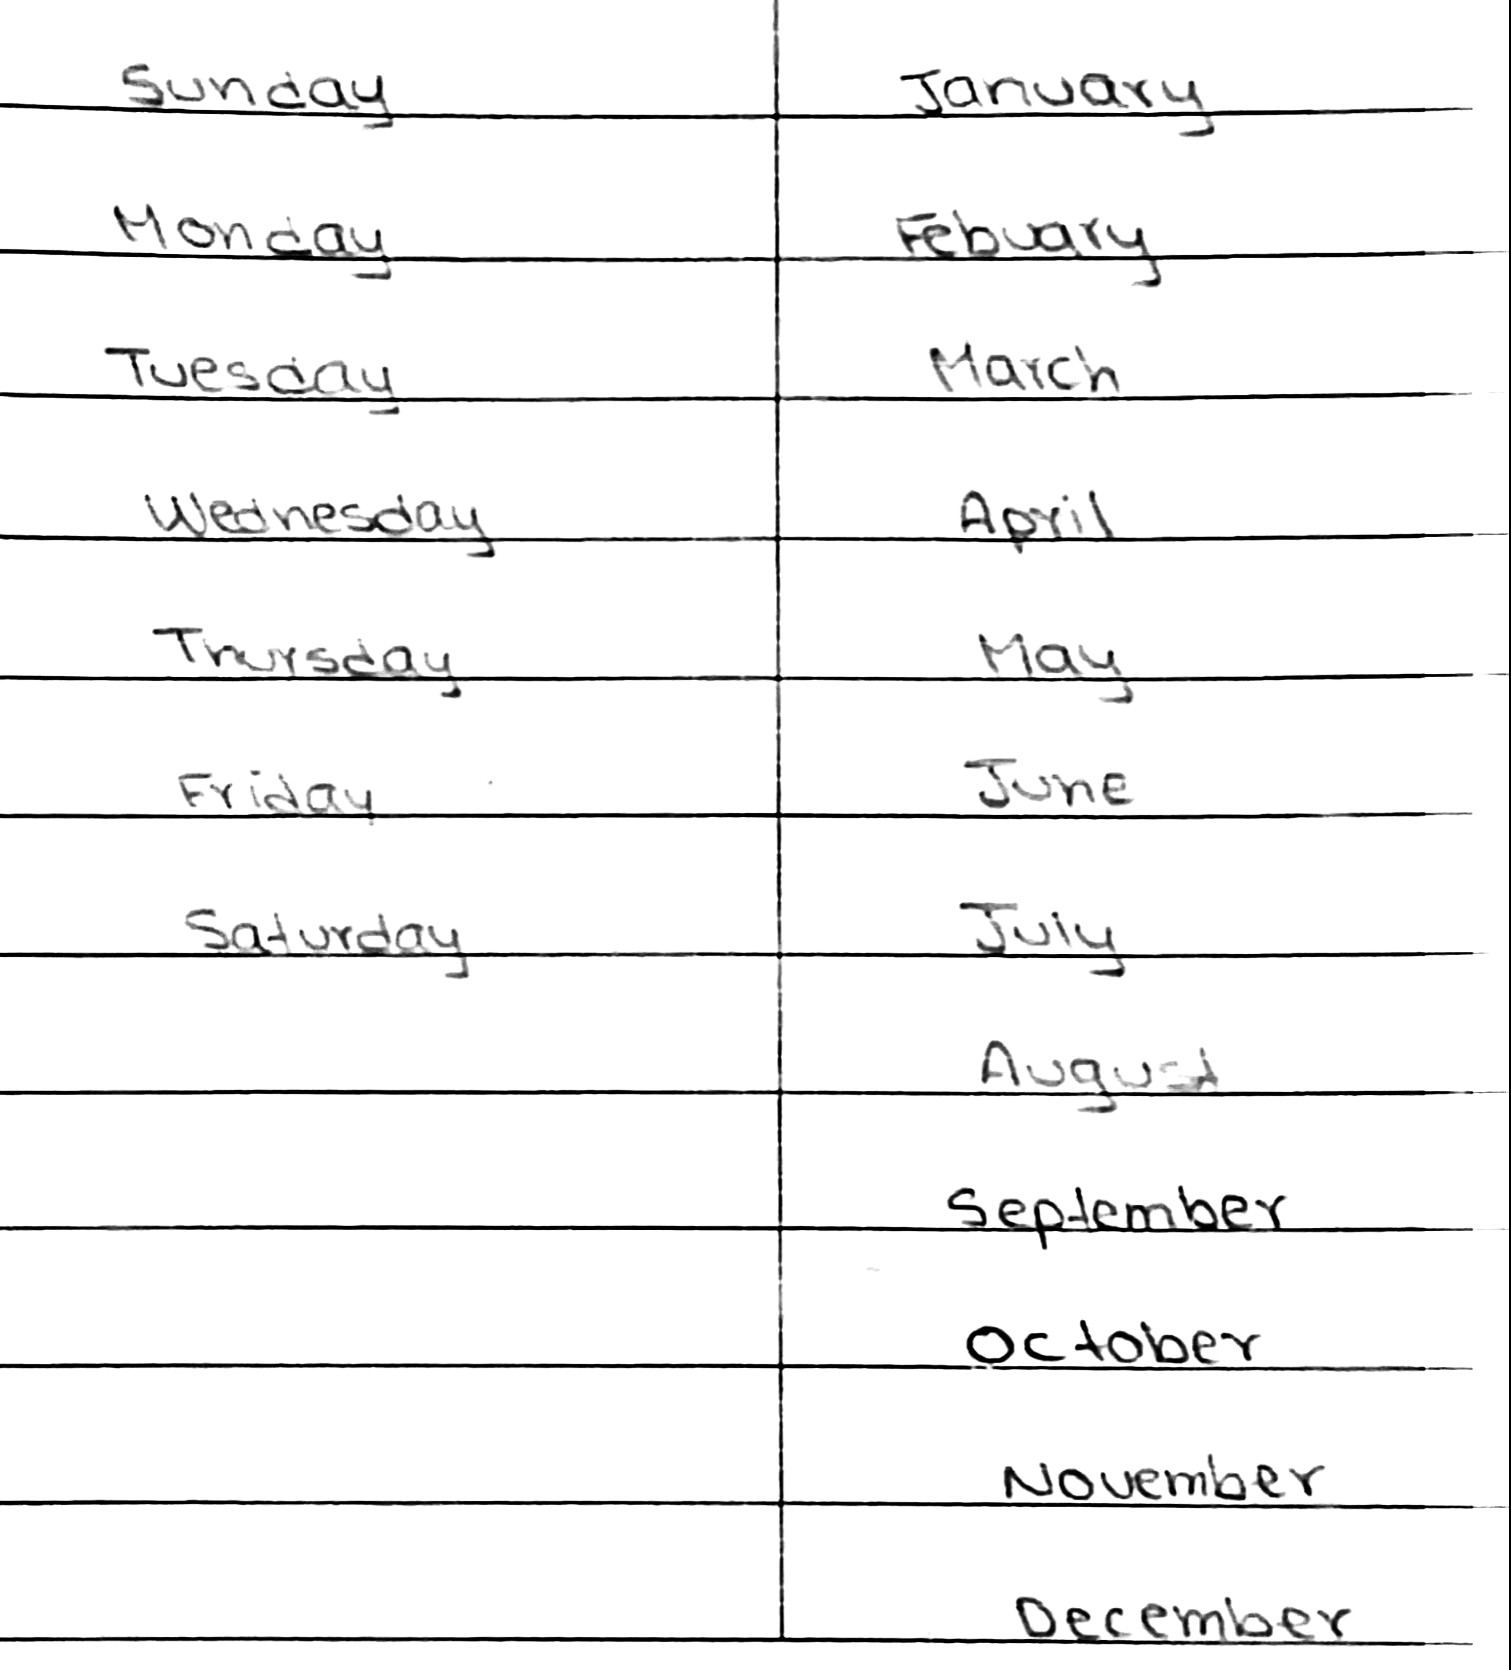 Sunday January
Monday Febuary
Tuesday March
Wednesday April
Thursday May
Friday June
Saturday July
August
September
October
November
December